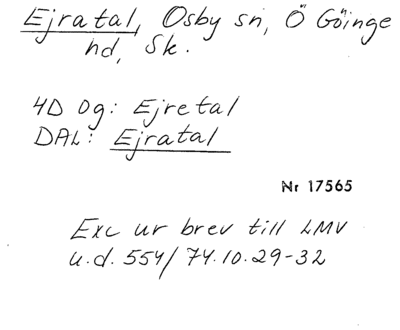 Ejratal, Osby sn, Ö Göinge
hd, Sk.
4D 0g: Ejretal
DAL: Ejratal
Nr 17565
Exc ur brev till LMV
u.d. 554/74.10.29-32